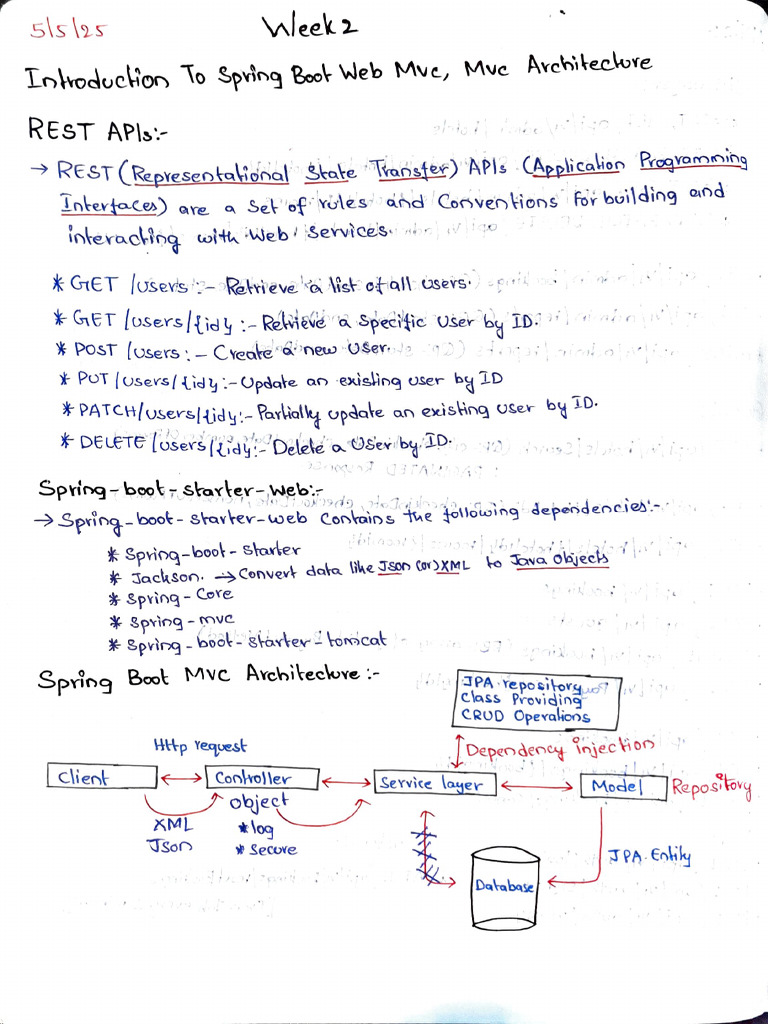 5/5/25
Week 2
Introduction To Spring Boot Web Mvc, Mvc Architecture
REST APIs:-
→ REST (Representational State Transfer) APIs (Application Programming
Interfaces) are a set of rules and Conventions for building and
interacting with Web Services.
* GET /users :- Retrieve a list of all users.
* GET /users/{id} :- Retrieve a specific user by ID.
* POST /users :- Create a new user.
* PUT /users/{id} :- Update an existing user by ID
* PATCH /users/{id} :- Partially update an existing user by ID.
* DELETE /users/{id} :- Delete a User by ID.
Spring-boot-starter-web:-
→ Spring-boot-starter-web contains the following dependencies:-
* Spring-boot-starter
* Jackson. → Convert data like Json (or) XML to Java Objects
* Spring-Core
* Spring-mvc
* Spring-boot-starter-tomcat
Spring Boot MVC Architecture:-
JPA repository
Class Providing
CRUD Operations
Http request
Dependency injection
Client
Controller
Service layer
Model
Repository
object
XML
* log
Json
* secure
JPA Entity
Database